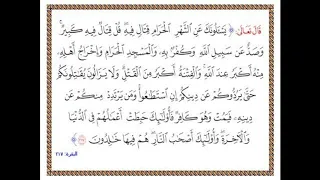 قال تعالى: ﴿ يَسْـَٔلُونَكَ عَنِ ٱلشَّهْرِ ٱلْحَرَامِ قِتَالٍ فِيهِ ۖ قُلْ قِتَالٌ فِيهِ كَبِيرٌ ۖ
وَصَدٌّ عَن سَبِيلِ ٱللَّهِ وَكُفْرٌۢ بِهِۦ وَٱلْمَسْجِدِ ٱلْحَرَامِ وَإِخْرَاجُ أَهْلِهِۦ
مِنْهُ أَكْبَرُ عِندَ ٱللَّهِ ۚ وَٱلْفِتْنَةُ أَكْبَرُ مِنَ ٱلْقَتْلِ ۗ وَلَا يَزَالُونَ يُقَـٰتِلُونَكُمْ
حَتَّىٰ يَرُدُّوكُمْ عَن دِينِكُمْ إِنِ ٱسْتَطَـٰعُوا۟ ۚ وَمَن يَرْتَدِدْ مِنكُمْ عَن
دِينِهِۦ فَيَمُتْ وَهُوَ كَافِرٌ فَأُو۟لَـٰٓئِكَ حَبِطَتْ أَعْمَـٰلُهُمْ فِى ٱلدُّنْيَا
وَٱلْـَٔاخِرَةِ ۖ وَأُو۟لَـٰٓئِكَ أَصْحَـٰبُ ٱلنَّارِ ۖ هُمْ فِيهَا خَـٰلِدُونَ ﴿٢١٧﴾
البقرة: ٢١٧